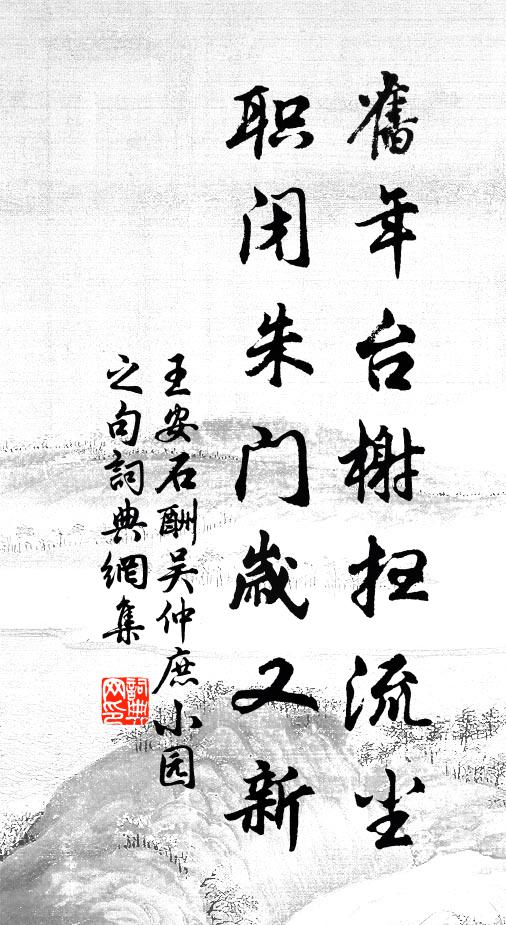 舊年台榭扫流尘
职闭朱门歳又新
王安石酬吴仲庶小园
之句詞典網集
詞典
网印